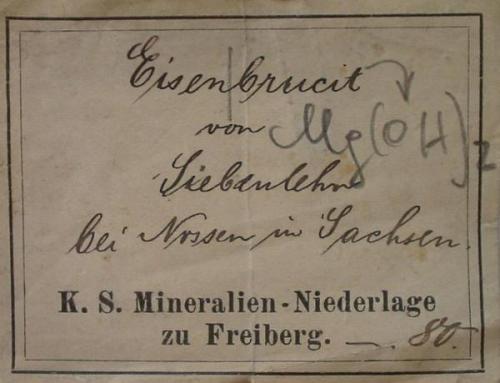 Eisenbrucit
von Mg(OH)2
Siebenlehn
bei Nossen in Sachsen.
K. S. Mineralien-Niederlage
zu Freiberg. —. 80.